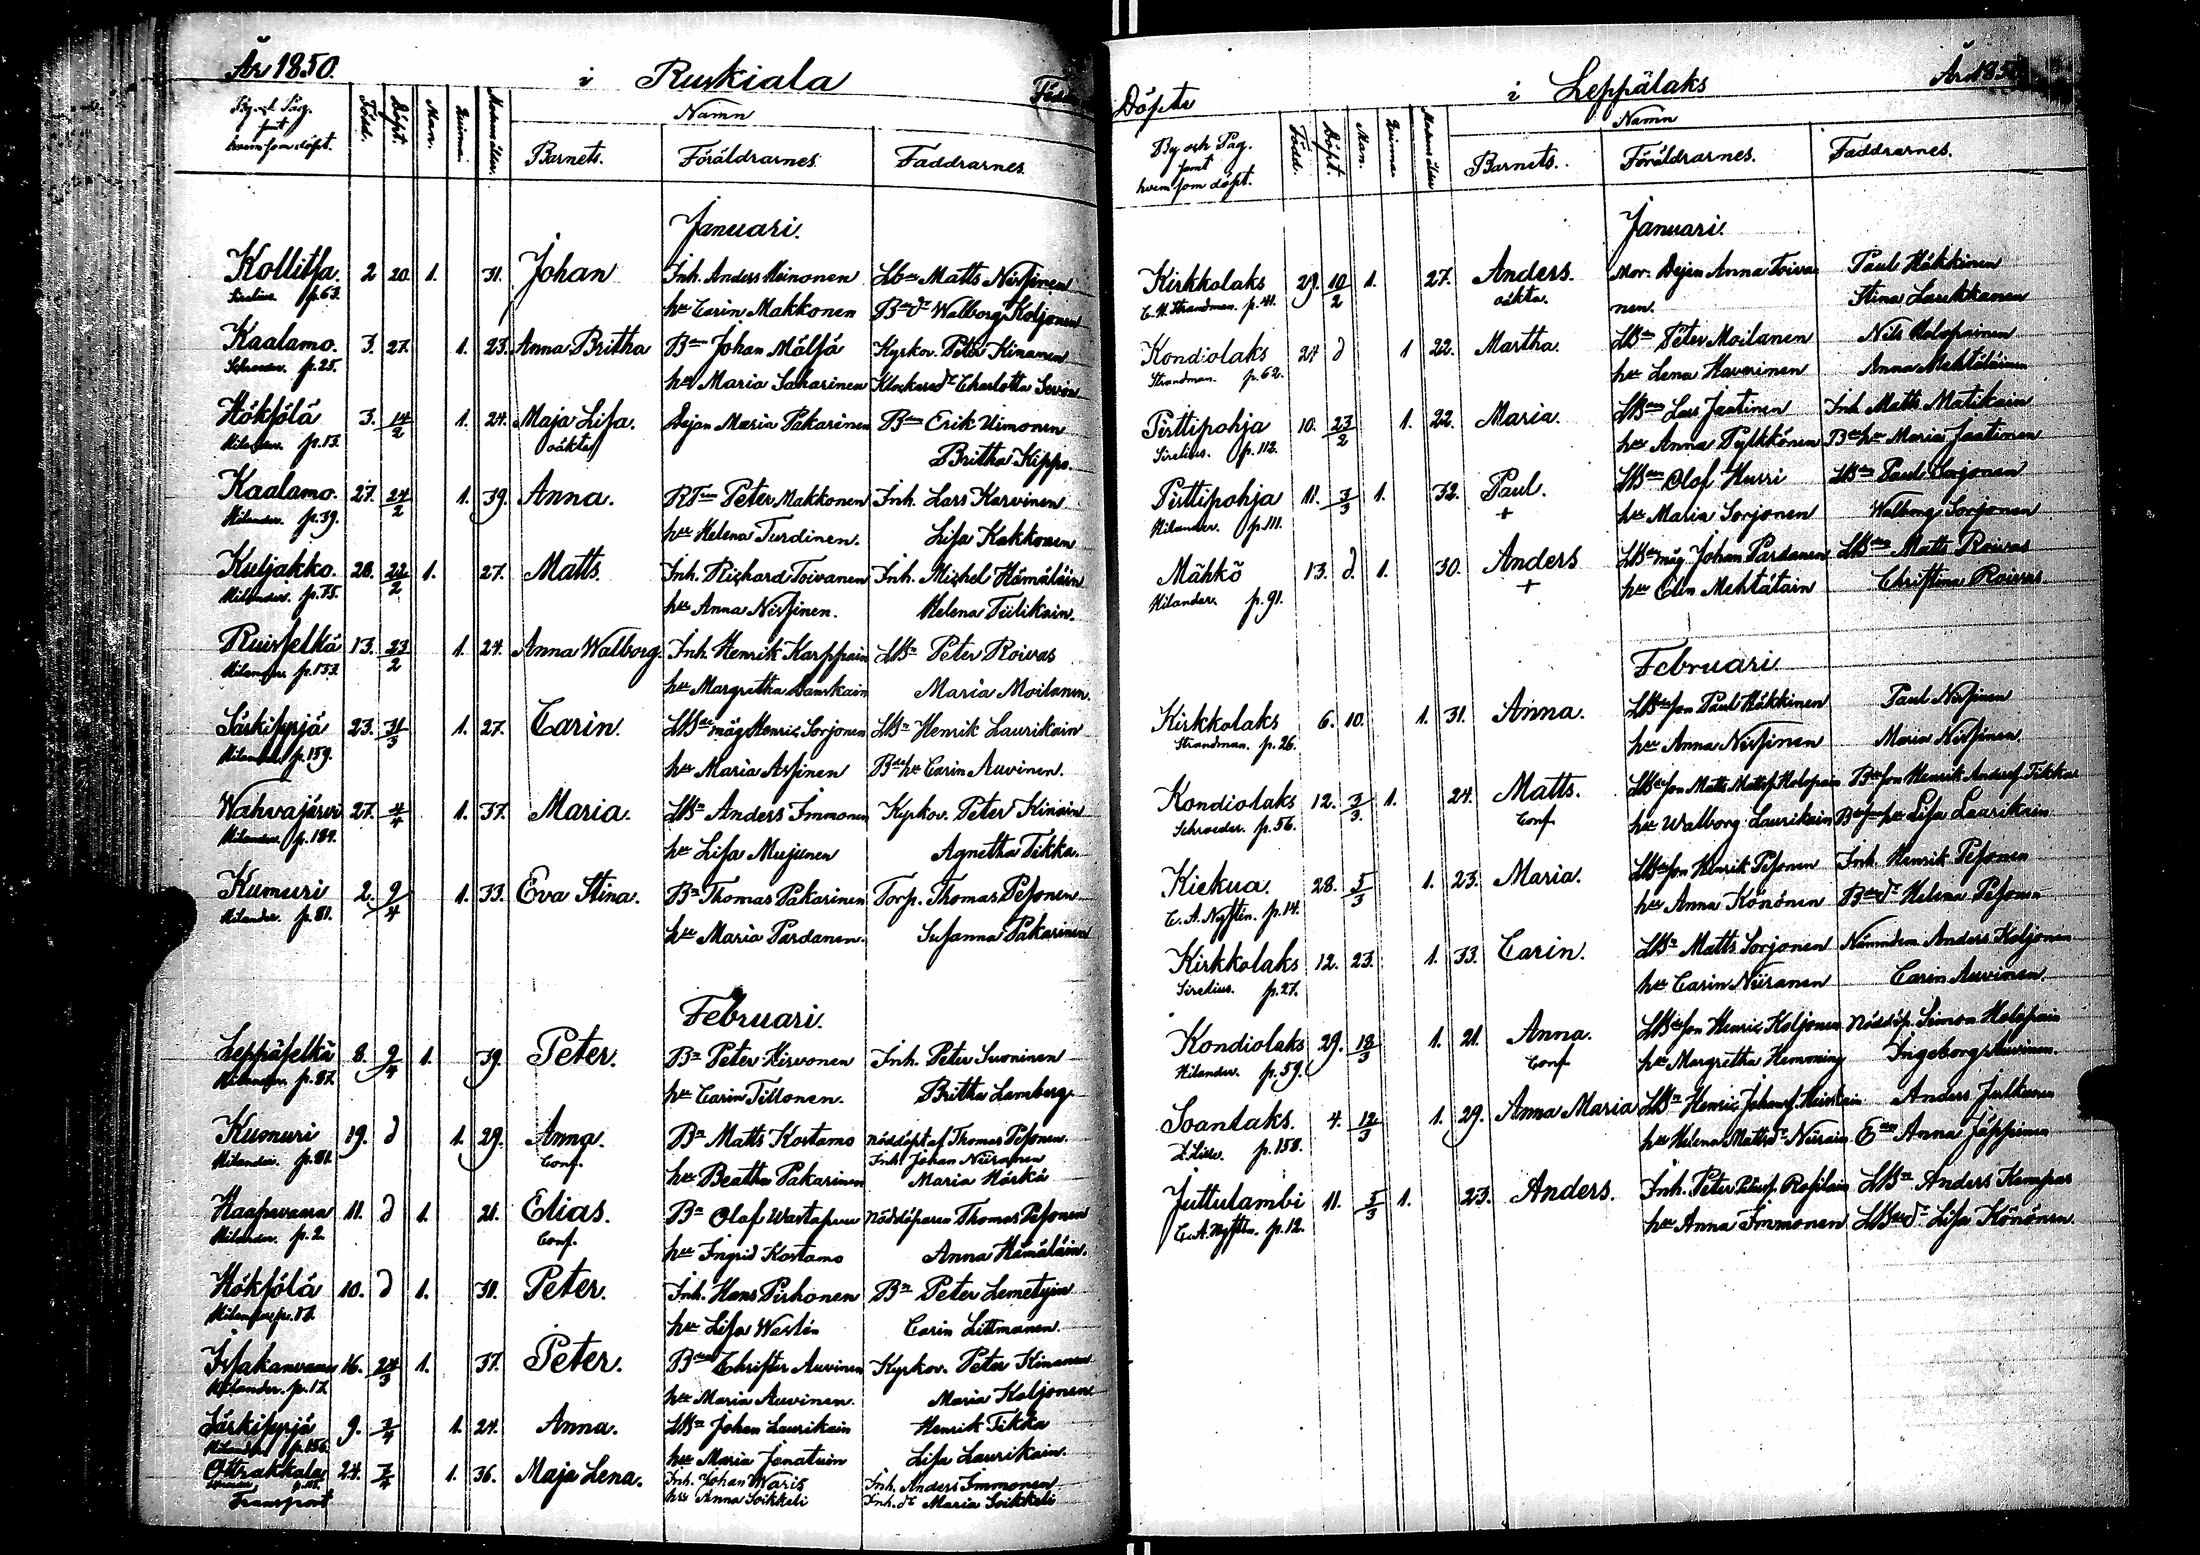 År 1850.
i Ruskiala
Född
Namn
Född.
Döpt.
Man.
Qvinna.
Barnets.
Föräldrarnes.
Faddrarnes.
Januari.
Kollitsa. 2 20. 1. 31. Johan Inh. Anders Heinonen Matts Nissinen
Sirelius. p.63. Carin Makkonen Walborg Koljonen
Kaalamo. 3. 27. 1. 23. Anna Britha Johan Mälsä Kyrkov. Peter Kinanen
p.25. Maria Saharinen Charlotta
Hökfölä 3. 14/2 1. 24. Maja Lisa. Dejan Maria Pakarinen Erik Uimonen
Hilander. p.13. oäkta Britha Kippo.
Kaalamo. 27. 24/2 1. 39. Anna. Peter Makkonen Inh. Lars Karvinen
Hilander. p.39. Helena Turdinen. Lisa Kakkonen
Kuljakko. 28. 22/2 1. 27. Matts. Inh. Richard Toivanen Inh. Michel Hämäläin
Hilander. p.75. Anna Nissinen. Helena Tiilikain.
Ruisselkä 13. 23/2 1. 24. Anna Walborg. Inh. Henrik Karppain Peter Roivas
Hilander p.133. Margretha Maria Moilanen.
Särkisyrjä 23. 31/3 1. 27. Carin. måg Henric Sorjonen Henrik Laurikain
p.159. Maria Assinen Carin Auvinen.
Wahvajärvi 27. 4/4 1. 37. Maria. Anders Immonen Kyrkov. Peter Kinain
Hilander. p.184. Lisa Mujunen Agnetha Tikka.
Kumuri 2. 9/4 1. 33. Eva Stina. Thomas Pakarinen Torp. Thomas Pesonen
Hilander. p.81. Maria Pardanen. Susanna Pakarinen
Februari.
Leppäselkä 8. 9/4 1. 39. Peter. Peter Hirvonen Inh. Peter Suoninen
Hilander. p.87. Carin Tillonen. Britha Lemberg.
Kumuri 19. d 1. 29. Anna. Matts Kostamo Nöddöpt af Thomas Pesonen.
Hilander. p.81. Conf. Inh. Johan Niiranen
Beatha Pakarinen Maria Härkä
Haapavaara 11. d 1. 21. Elias. Olof Nöddöparen Thomas Pesonen
Hilander. p.2. Conf. Ingrid Kostamo Anna Hämäläin.
Hökfölä 10. d 1. 38. Peter. Inh. Hans Pirhonen Peter Lemetyin
Lisa Carin Littmanen.
16. 24/3 1. 37. Peter. Christer Auvinen Kyrkov. Peter Kinanen
Hilander. p.17. Maria Auvinen. Maria Koljonen
Särkisyrjä 9. 7/4 1. 24. Anna. Johan Laurikain Henrik Tikka
p.156. Maria Jonatuin Lisa Laurikain.
Ottrakkala 24. 7/4 1. 36. Maja Lena. Inh. Johan Waris Inh. Anders Immonen
Anna Soikkeli Maria Soikkeli
Transport
Döpte
i Leppälaks
År 185
Namn
By och Pag. samt hvem som döpt.
Född.
Döpt.
Man.
Qvinna
Barnets.
Föräldrarnes.
Faddrarnes.
Januari.
Kirkkolaks 29. 10/2 1. 27. Anders. Mor: Dejan Anna Toiva Paul Häkkinen
Strandman. p.41. oäkta. nen. Stina Laukkanen
Kondiolaks 24 d 1 22. Martha. Peter Moilanen Nils Holopainen
Strandman. p.62. Lena Haverinen Anna Mehtäläinen
Pirttipohja 10. 23/2 1. 22. Maria. Lars Jaatinen Inh. Matts Matikain
Sirelius. p.112. Anna Pylkkönen Maria Jaatinen
Pirttipohja 11. 3/3 1. 32. Paul. Olof Hurri Paul Sorjonen
Hilander. p.111. + Maria Sorjonen Walborg Sorjonen
Mähkö 13. d. 1. 30. Anders måg Johan Pardanen Matts Roivas
Hilander. p.91. + Elin Mehtätäin Christina Roivas.
Februari
Kirkkolaks 6. 10. 1. 31. Anna. son Paul Häkkinen Paul Nissinen
Strandman. p.26. Anna Nissinen Maria Nissinen.
Kondiolaks 12. 3/3 1. 24. Matts. son Matts Mattss. Holopain son Henrik Anderss. Tikka
Schroeder. p.56. Conf. Walborg Laurikain Lisa Laurikain
Kiekua. 28. 5/3 1. 23. Maria. son Henrik Pesonen Inh. Henrik Pesonen
C. A. Nystén. p.14. Anna Könönen Helena Pesonen
Kirkkolaks 12. 23. 1. 33. Carin. Matts Sorjonen Nämndem. Anders Koljonen
Sirelius. p.27. Carin Niiranen Carin Auvinen.
Kondiolaks 29. 18/3 1. 21. Anna. son Henric Koljonen Nöddöp. Simon Holopain
Hilander. p.59. Conf. Margretha Hemming Ingeborg Auvinen.
Soanlaks. 4. 12/3 1. 29. Anna Maria Henric Johans. Anders Julkunen
p.158. Helena Anna Jäppinen
Juttulambi 11. 5/3 1. 23. Anders. Inh. Peter Anders Kempas
C. A. Nystén. p.12. Anna Immonen Lisa Könönen.